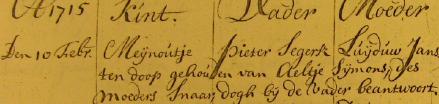 Aº 1715 Kint. Vader Moeder
Den 10 Febr. Meijnoutje Pieter Segerse Luijduw Jans
ten doop gehouden van Aeltje Sijmons, des
moeders Snaar, dogh bij de vader beantwoort.